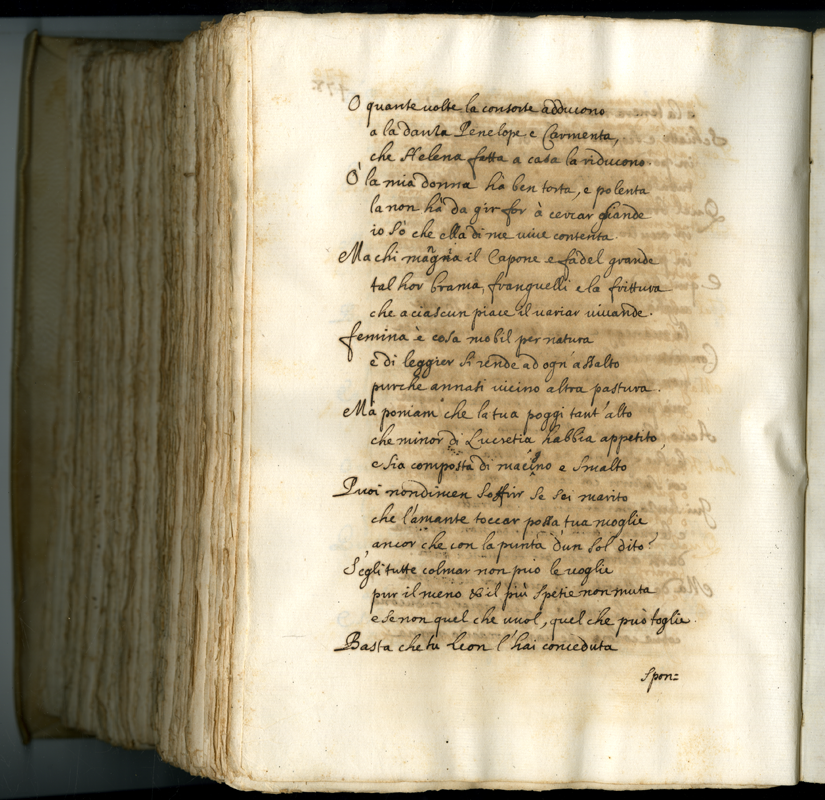 O quante volte la consorte adducono
a la danza Penelope e Carmenta,
che Helena fatta a casa la riducono.
O' la mia donna hà ben torta, e polenta
la non hà da gir for à cercar ghiande
io sò che ella di me vive contenta
Ma chi magna il Capone e fàdel grande
tal hor brama, franguelli e la frittura
che aciascun piace il variar vivande.
femina è cosa mobil per natura
e di leggier si rende ad ogn' assalto
purche annasi vicino altra pastura.
Ma poniam' che la tua poggi tant' alto
che minor di Lucretia habbia appetito,
e sia composta di macigno e smalto
Puoi nondimen soffrir se sei marito
che l'amante toccar possa tua moglie
ancor che con la punta d'un sol dito?
S'egli tutte colmar non può le voglie
pur il meno & il più spetie non muta
e se non quel che vuol, quel che può toglie.
Basta che tu Leon l'hai conceduta
spon=